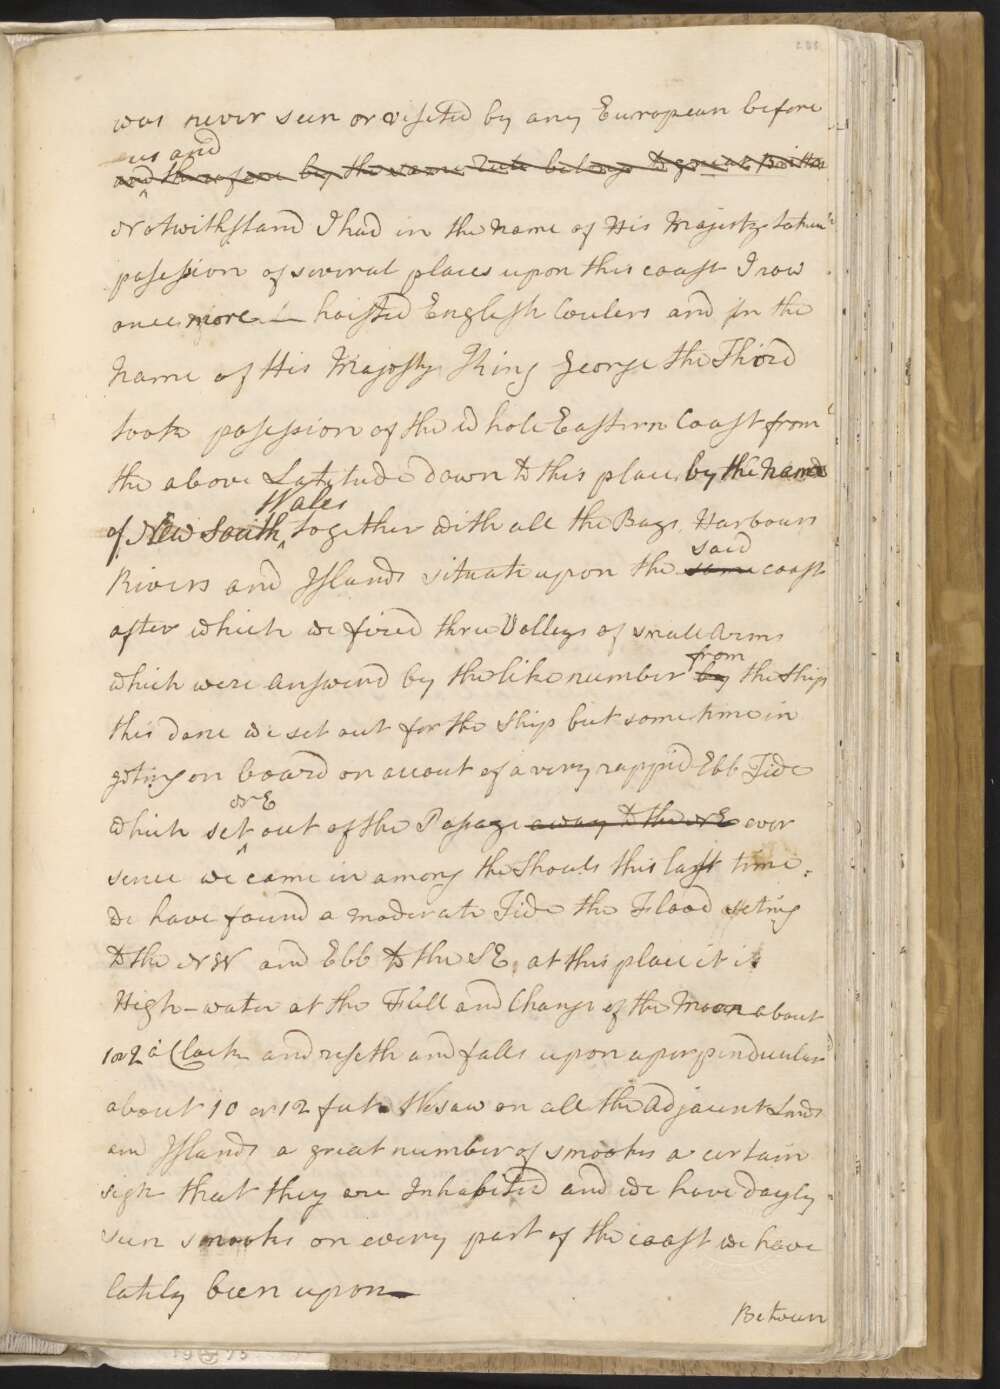 was never seen or visited by any European before
us and
and therefore by the same Rule belongs to great Brittan
Notwithstand I had in the Name of His Majesty taken
posession of several places upon this coast I now
once more hoisted English Coulers and in the
Name of His Majesty King George the Third
took posession of the whole Eastern Coast from
the above Latitude down to this place by the name
of New South Wales together with all the Bays, Harbours
Rivers and Islands situate upon the same said coast
after which we fired three Volleys of small Arms
which were Answerd by the like number by from the Ship
this done we set out for the Ship but some time in
geting on board on accout of a very rappid Ebb Tide
which set NE out of the Passage away to the NE ever
sence we came in among the Shoals this last time
we have found a moderate Tide the Flood seting
to the NW and Ebb to the SE, at this place it is
High-water at the Full and Change of the Moon about
1 or 2 o'Clock and riseth and falls upon a perpendicular
about 10 or 12 feet We saw on all the Adjacent Lands
and Islands a great number of smooks a certain
sign that they are Inhabited and we have dayly
seen smooks on every part of the coast we have
lately been upon
Between